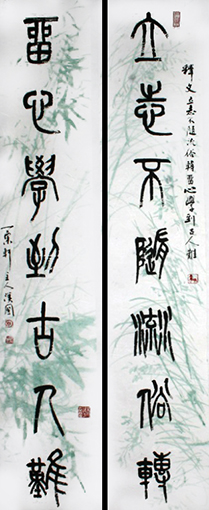 立志不隨流俗轉
釋文立志不隨流俗轉留心學到古人難
留心學到古人難